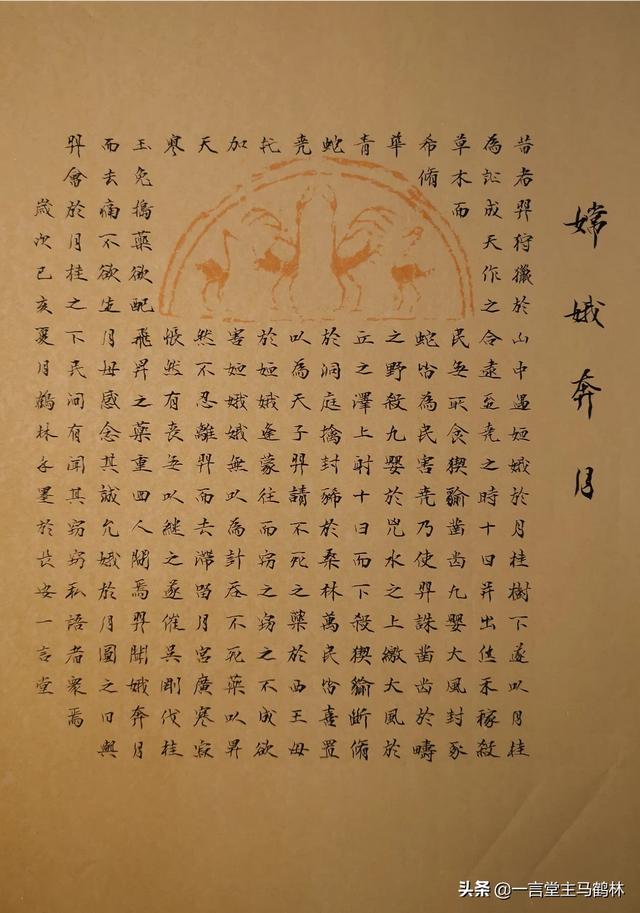 嫦娥奔月
昔者羿狩獵於山中遇姮娥於月桂樹下遂以月桂
為証成天作之合逮至堯之時十日並出焦禾稼殺
草木而民無所食猰貐鑿齒九嬰大風封豕
希脩蛇皆為民害堯乃使羿誅鑿齒於疇
華之野殺九嬰於兇水之上繳大風於
青丘之澤上射十日而下殺猰貐斷脩
蛇於洞庭擒封豨於桑林萬民皆喜置
堯以為天子羿請不死之藥於西王母
托於姮娥逢蒙往而窃之窃之不成欲
加害姮娥娥無以為計吞不死藥以昇
天然不忍離羿而去滯留月宮廣寒寂
寒悵然有喪無以継之遂催吳剛伐桂
玉兔搗藥欲配飛昇之藥重回人間焉羿聞娥奔月
而去痛不欲生月母感念其誠允娥於月圓之日與
羿會於月桂之下民间有聞其窃窃私語者衆焉
歲次己亥夏月鶴林手墨於長安一言堂
头条 @一言堂主马鹤林